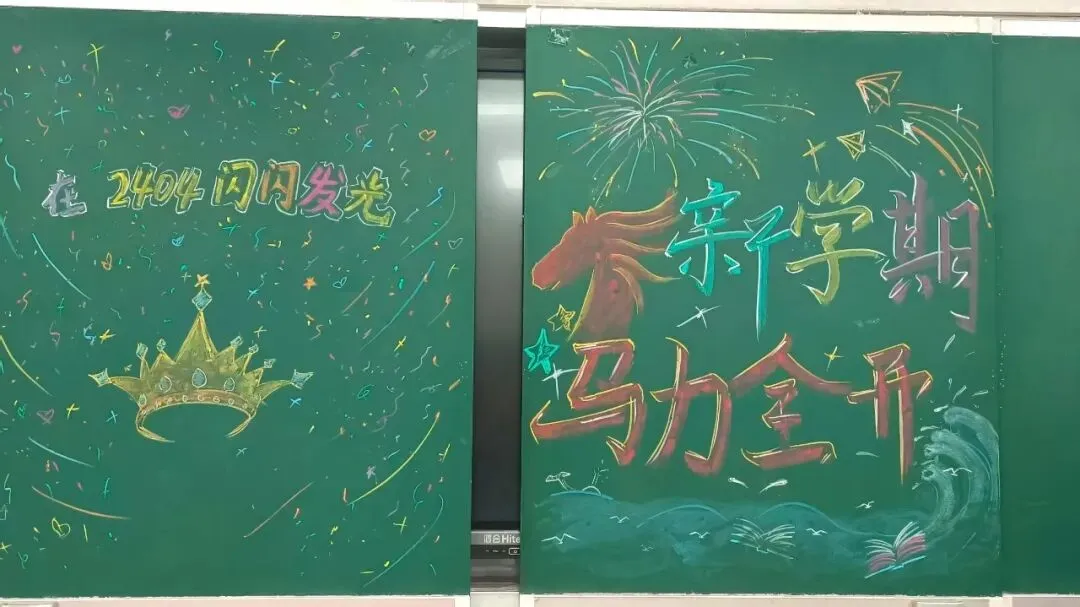 在2404闪闪发光
新学期
马力全开
Hite